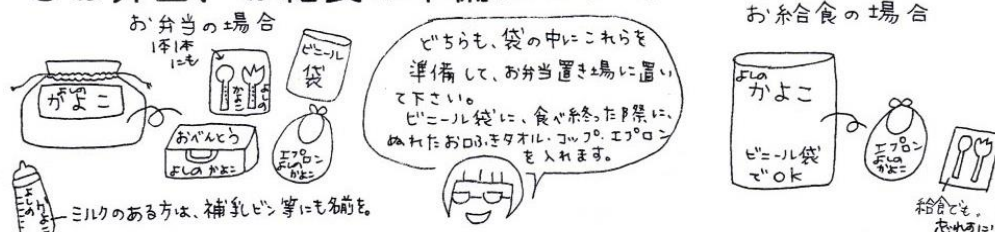 お弁当の場合
1本1本
にも
よしの
がよこ
かよこ
よしの
ビニール
袋
おべんとう
よしの かよこ
エプロン
よしの
かよこ
よしの
かよこ
ミルクのある方は、補乳ビン等にも名前を。
どちらも、袋の中にこれらを
準備して、お弁当置き場に置い
て下さい。
ビニール袋に、食べ終った際に、
ぬれたお口ふきタオル・コップ・エプロン
を入れます。
お給食の場合
よしの
かよこ
ビニール袋
でOK
エプロン
よしの
かよこ
給食でも、
忘れずに!